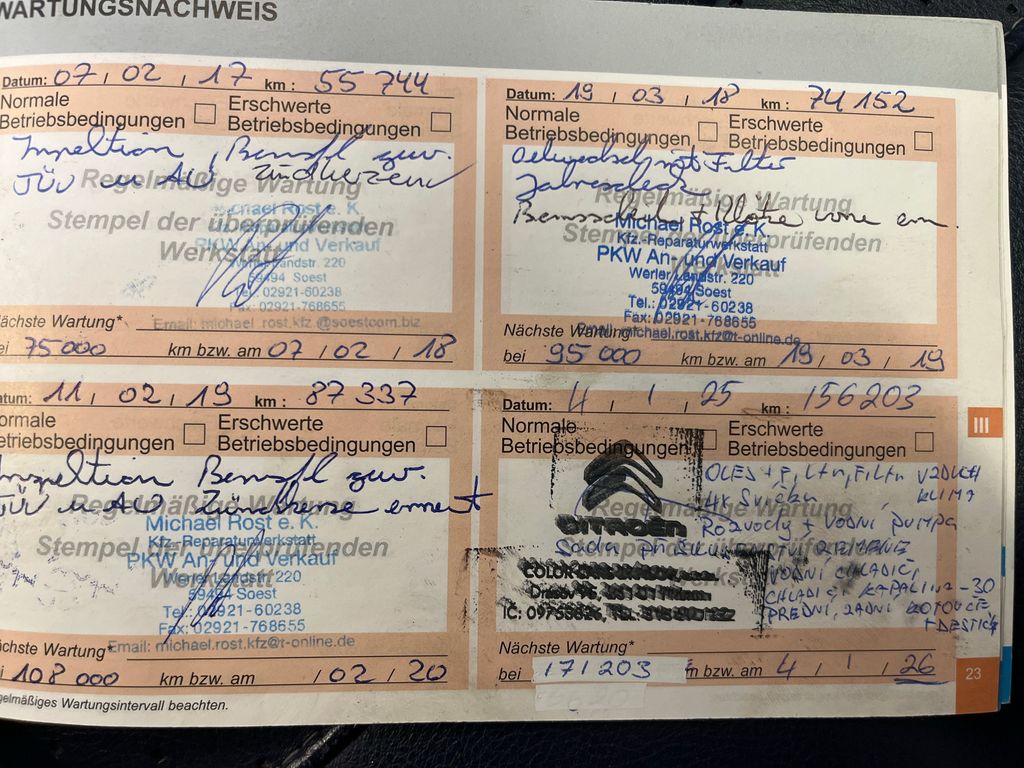 WARTUNGSNACHWEIS
Datum: 07 / 02 / 17 km : 55 744
Normale
Betriebsbedingungen
Erschwerte
Betriebsbedingungen
Bremsfl
TÜV u AU
Regelmäßige Wartung
Stempel der überprüfenden
Werkstatt
chael Rost e. K.
PKW An- und Verkauf
Werler Landstr. 220
59494 Soest
Tel.: 02921-60238
Fax: 02921-768655
Email: michael_rost.kfz @soestcom.biz
ächste Wartung*
ei 75 000 km bzw. am 07 / 02 / 18
Datum: 19 / 03 / 18 km : 74 152
Normale
Betriebsbedingungen
Erschwerte
Betriebsbedingungen
Filter
Regelmäßige Wartung
Stempel der überprüfenden
Michael Rost e. K.
Kfz.-Reparaturwerkstatt
PKW An- und Verkauf
Werler Landstr. 220
59494 Soest
Tel.: 02921-60238
Fax: 02921-768655
Email: michael.rost.kfz@t-online.de
Nächste Wartung*
bei 95 000 km bzw. am 19 / 03 / 19
atum: 11 / 02 / 19 km : 87 337
ormale
etriebsbedingungen
Erschwerte
Betriebsbedingungen
Bremsfl
TÜV u AU Zündkerze erneut
Regelmäßige Wartung
Stempel der überprüfenden
Michael Rost e. K.
Kfz.-Reparaturwerkstatt
PKW An- und Verkauf
Werler Landstr. 220
59494 Soest
Tel.: 02921-60238
Fax: 02921-768655
Email: michael.rost.kfz@t-online.de
ächste Wartung*
108 000 km bzw. am / 02 / 20
egelmäßiges Wartungsintervall beachten.
Datum: 4 / 1 / 25 km : 156203
Normale
Betriebsbedingungen
Erschwerte
Betriebsbedingungen
OLEJ + FILTR, FILTR VZDUCH
KLIMA
4x Svíčku
Regelmäßige Wartung
CITROËN
Rozvody + VODNÍ PUMPA
Sada
VODNÍ CHLADIČ,
CHLADIČ KAPALINA -30
PŘEDNÍ, ZADNÍ KOTOUČE
+ DESTIČK
Nächste Wartung*
bei 171 203 m bzw. am 4 / 1 / 26
III
23